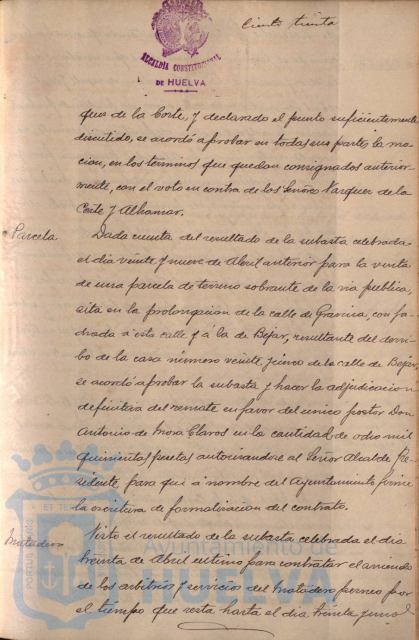 Ciento treinta
ALCALDÍA CONSTITUCIONAL
DE HUELVA
quez de la Corte, y declarado el punto suficientemente
discutido, se acordó aprobar en todas sus partes la mo-
cion, en los términos que quedan consignados anterior-
mente, con el voto en contra de los Señores Vazquez de la
Corte y Alhamar.
Parcela
Dada cuenta del resultado de la subasta celebrada
el dia veinte y nueve de Abril anterior para la venta
de una parcela de terreno sobrante de la via publica,
sita en la prolongacion de la calle de Gravina, con fa-
chada a esta calle y á la de Bejar, resultante del derri-
bo de la casa número veinte y cinco de la calle de Bejar,
se acordó aprobar la subasta y hacer la adjudicacion
definitiva del remate en favor del único postor Don
Antonio de Mora Claros en la cantidad de ocho mil
quinientas pesetas autorizandose al Señor Alcalde Pre-
sidente para que á nombre del Ayuntamiento firme
la escritura de formalizacion del contrato.
Matadero
Visto el resultado de la subasta celebrada el dia
treinta de Abril último para contratar el arriendo
de los arbitrios y servicios del Matadero publico por
el tiempo que resta hasta el dia treinta y uno
PORTUS MARIS
ET TERRAE
Ayuntamiento de
HUELVA